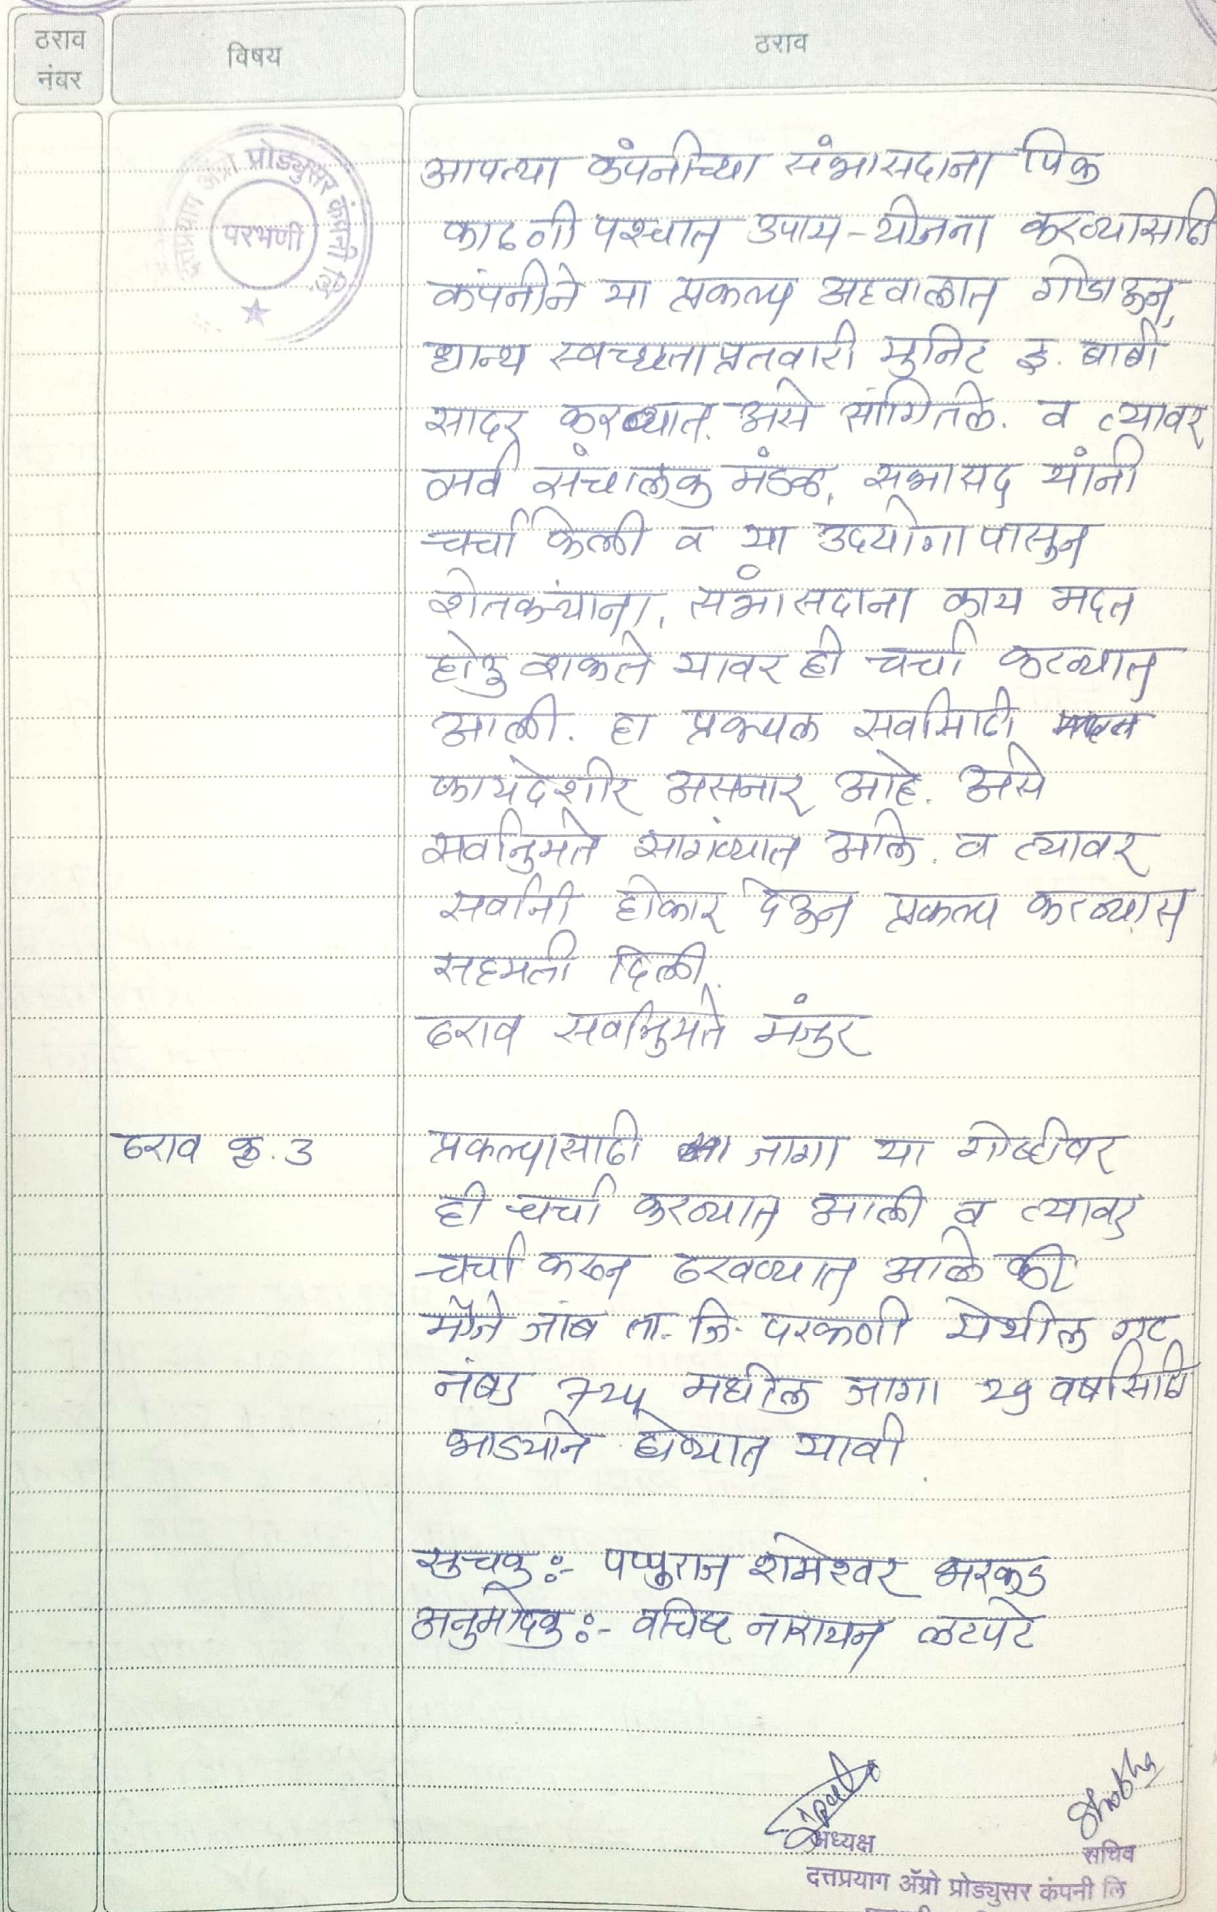 ठराव नंबर
विषय
ठराव
दत्तप्रयाग ॲग्रो प्रोड्युसर कंपनी लि.
परभणी
आपल्या कंपनीच्या संभासदाना पिक
काढणी पश्चात उपाय-योजना करण्यासाठी
कंपनीने या प्रकल्प अहवालात गोडाऊन,
धान्य स्वच्छता प्रतवारी युनिट इ. बाबी
सादर करण्यात. असे सांगितले. व त्यावर
सर्व संचालक मंडळ, सभासद यांनी
चर्चा केली व या उदयोगा पासुन
शेतकऱ्यांना, सभांसदाना काय मदत
होवु शकते यावर ही चर्चा करण्यात
आली. हा प्रकपल सर्वासाठी
फायदेशीर असनार आहे. असे
सर्वानुमते सागंण्यात आले. व त्यावर
सर्वानी होकार देऊन प्रकल्प करण्यास
सहमती दिली.
ठराव सर्वानुमते मंजुर
ठराव क्र. 3
प्रकल्पासाठी जागा या गोष्टीवर
ही चर्चा करण्यात आली व त्यावर
चर्चा करून ठरवण्यात आले की
मौजे जांब ता. जि. परभणी येथील गट
नंबर मधील जागा २९ वर्षासाठि
भाड्याने घेण्यात यावी.
सुचक :- पप्पुराज रामेश्वर भरकड
अनुमोदक :- नारायन लटपटे
Shobha
अध्यक्ष
सचिव
दत्तप्रयाग ॲग्रो प्रोड्युसर कंपनी लि